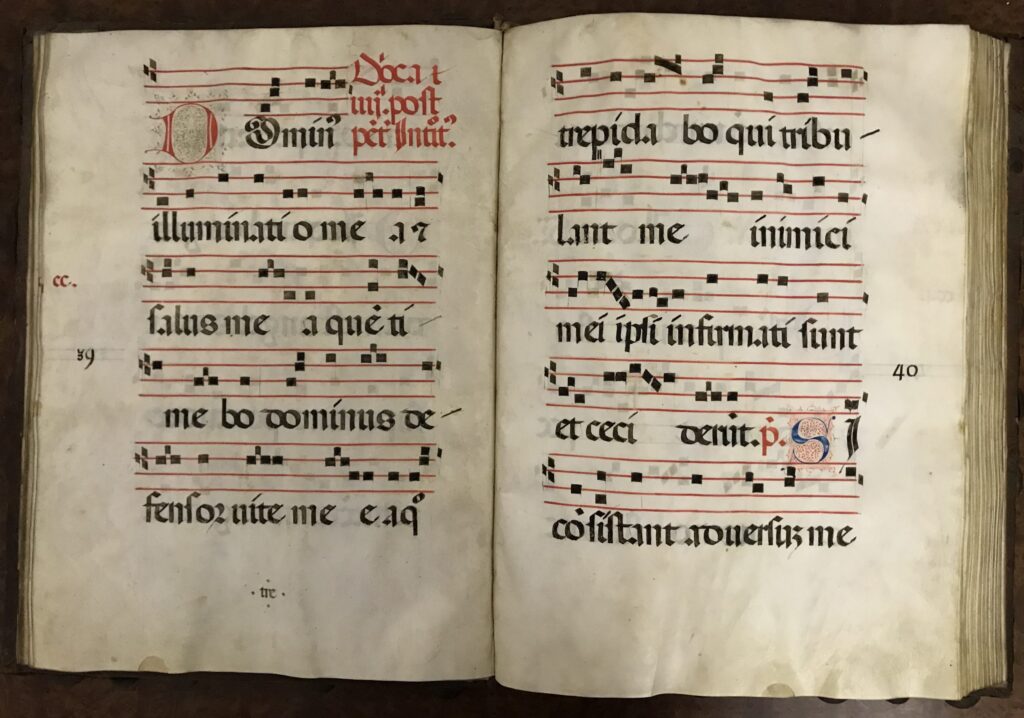 Domin⁹
Doc.a i
iiij. post
pēt Intūt⁹.
illuminati o me a ⁊
cc.
salus me a quē ti
39
me bo dominus de
fensoꝛ uite me e aq°
·tre·
trepida bo qui tribu
lant me inimici
mei ipsi infirmati sunt
40
et ceci derūt. p̄. SI
cōsistant aduersuȝ me